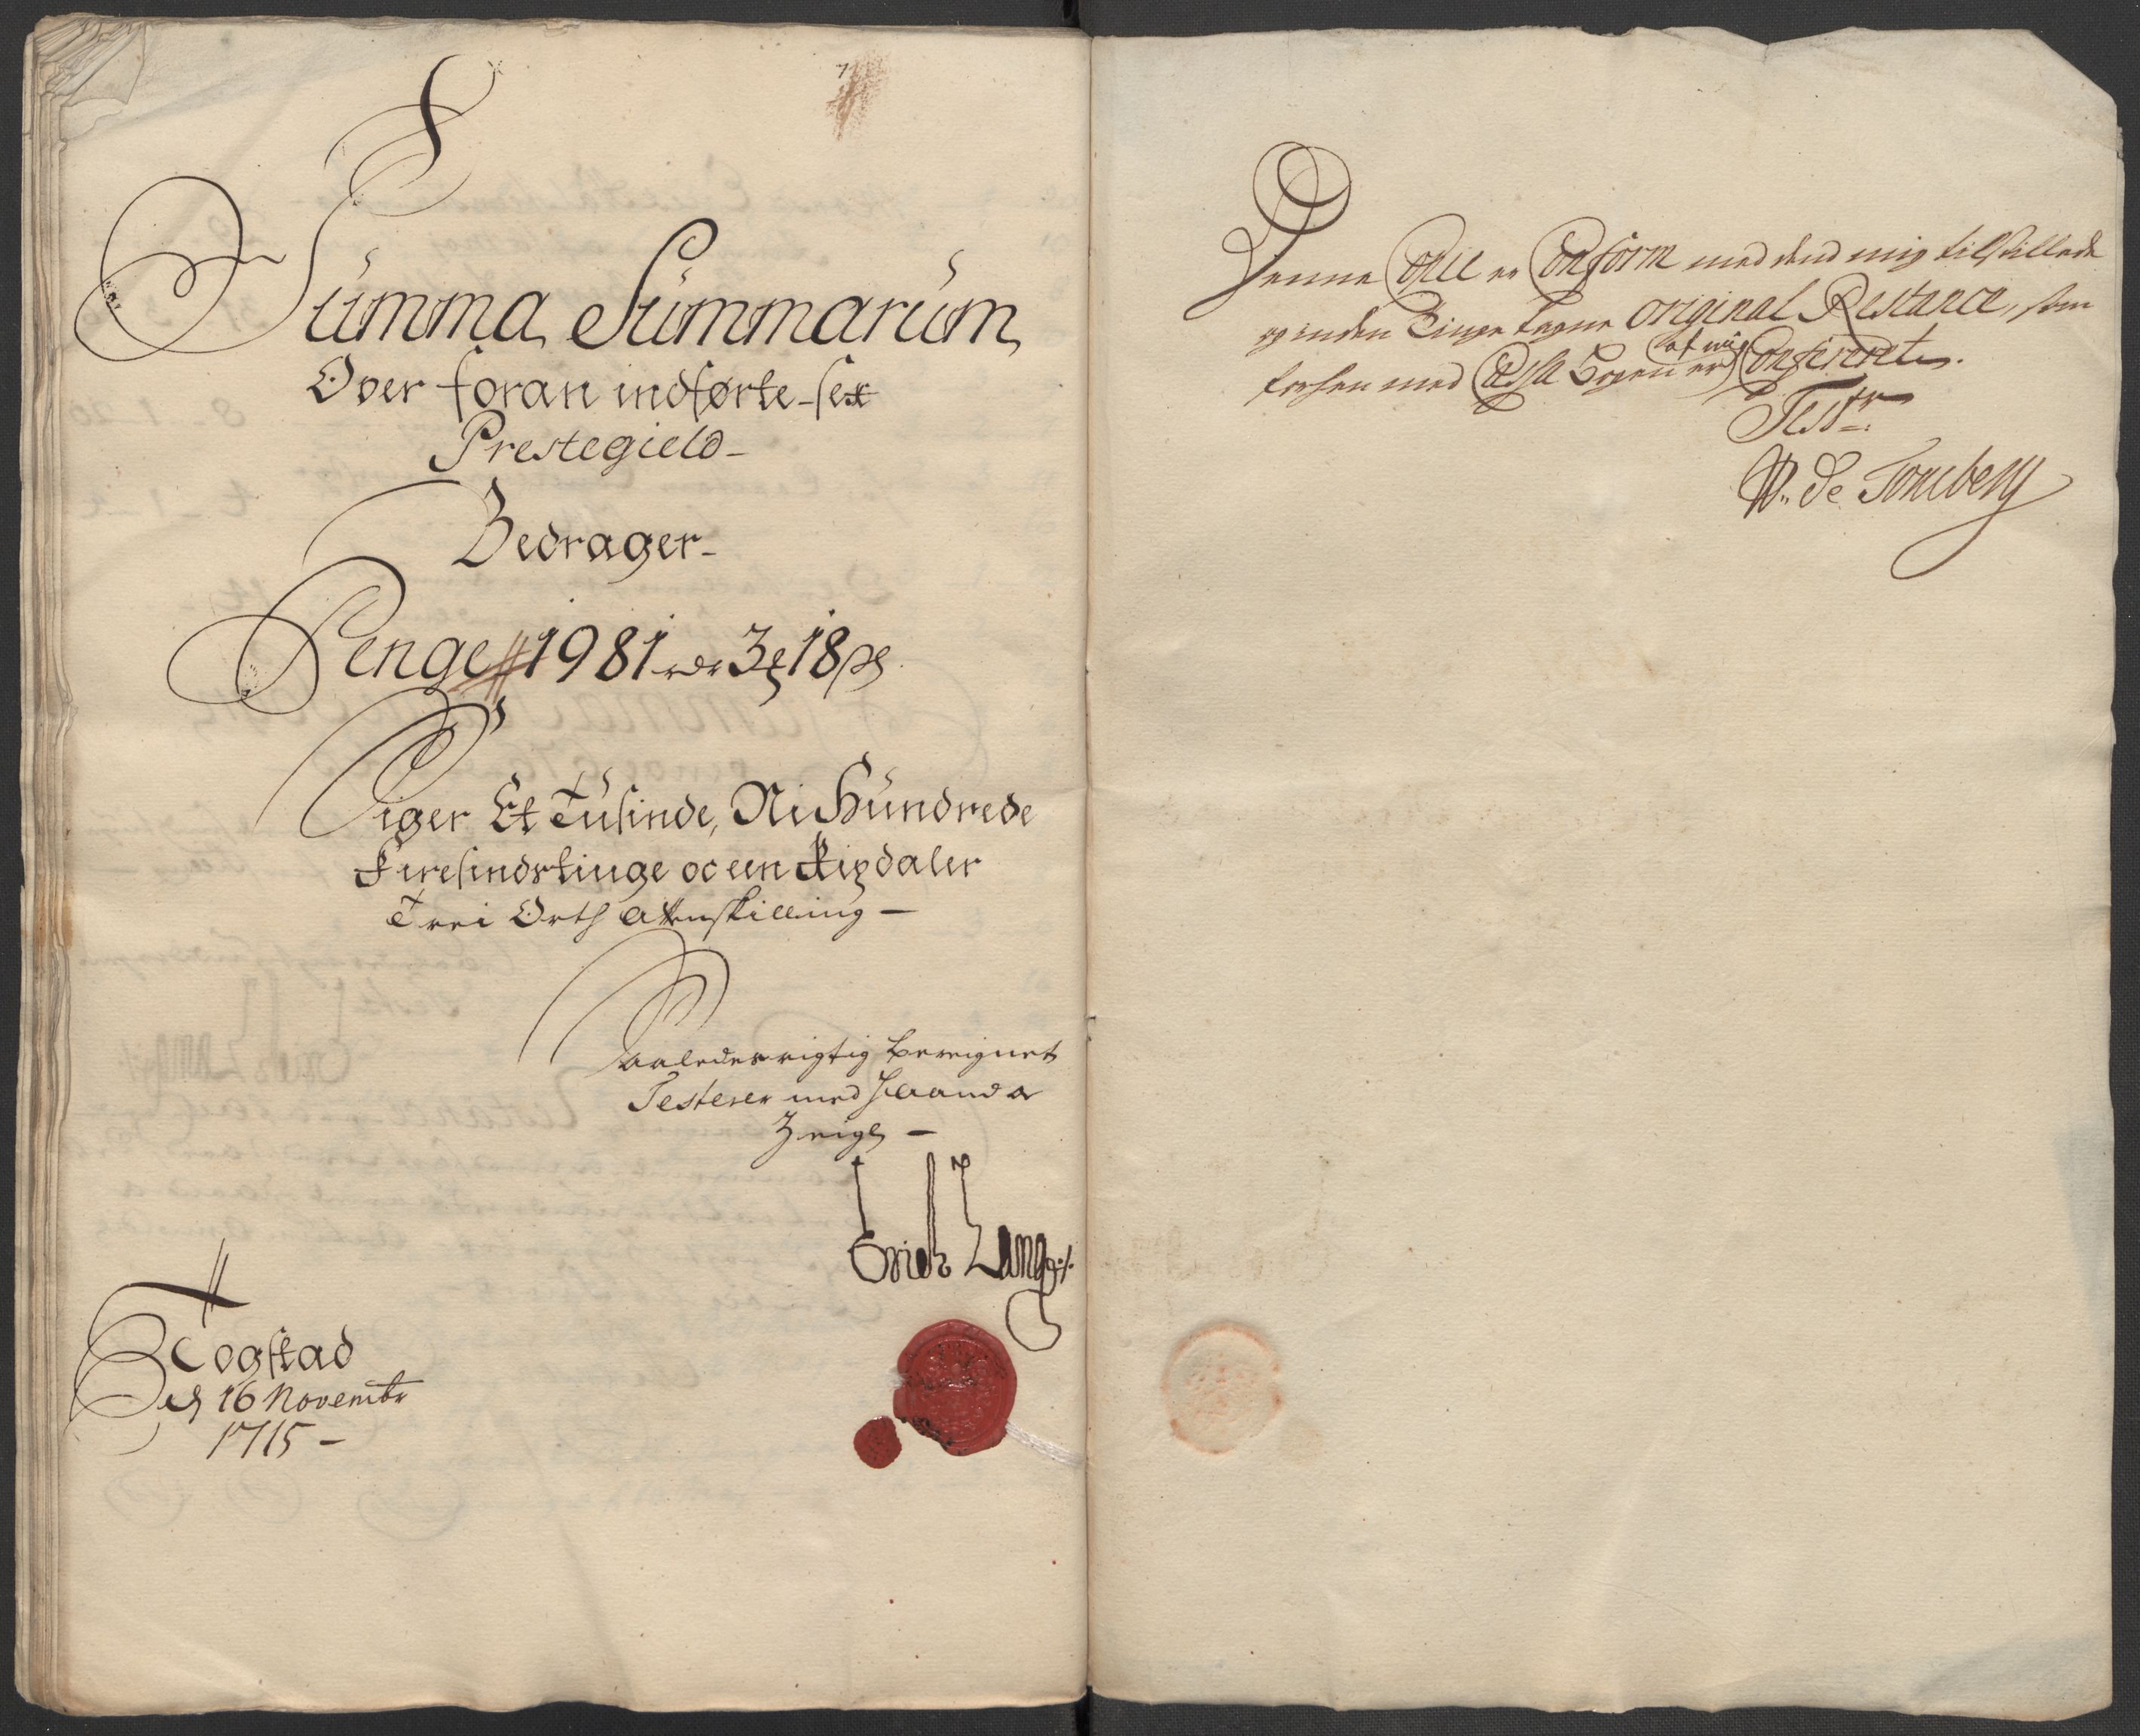 Summa Summarum
Over foran indførte sex
Prestegield
Bedrager
Penge 1981 rdr 3 ꝭ 18 ß
Siger Et Tusinde, Ni Hundrede
Firesindstiuge oc een Rixdaler
Trei Orth Atten skilling
Saaledes rigtig bereignet
Testerer med Haand &
Zeigl
Erich Lang
Togstad
d 16 Novembr
1715
Denne Copie er Conform med dend mig tilstillede
og inden Tinge original Restance, som
med Cassa Bogen er af mig Confereret.
Testr
W. de Tonsberg